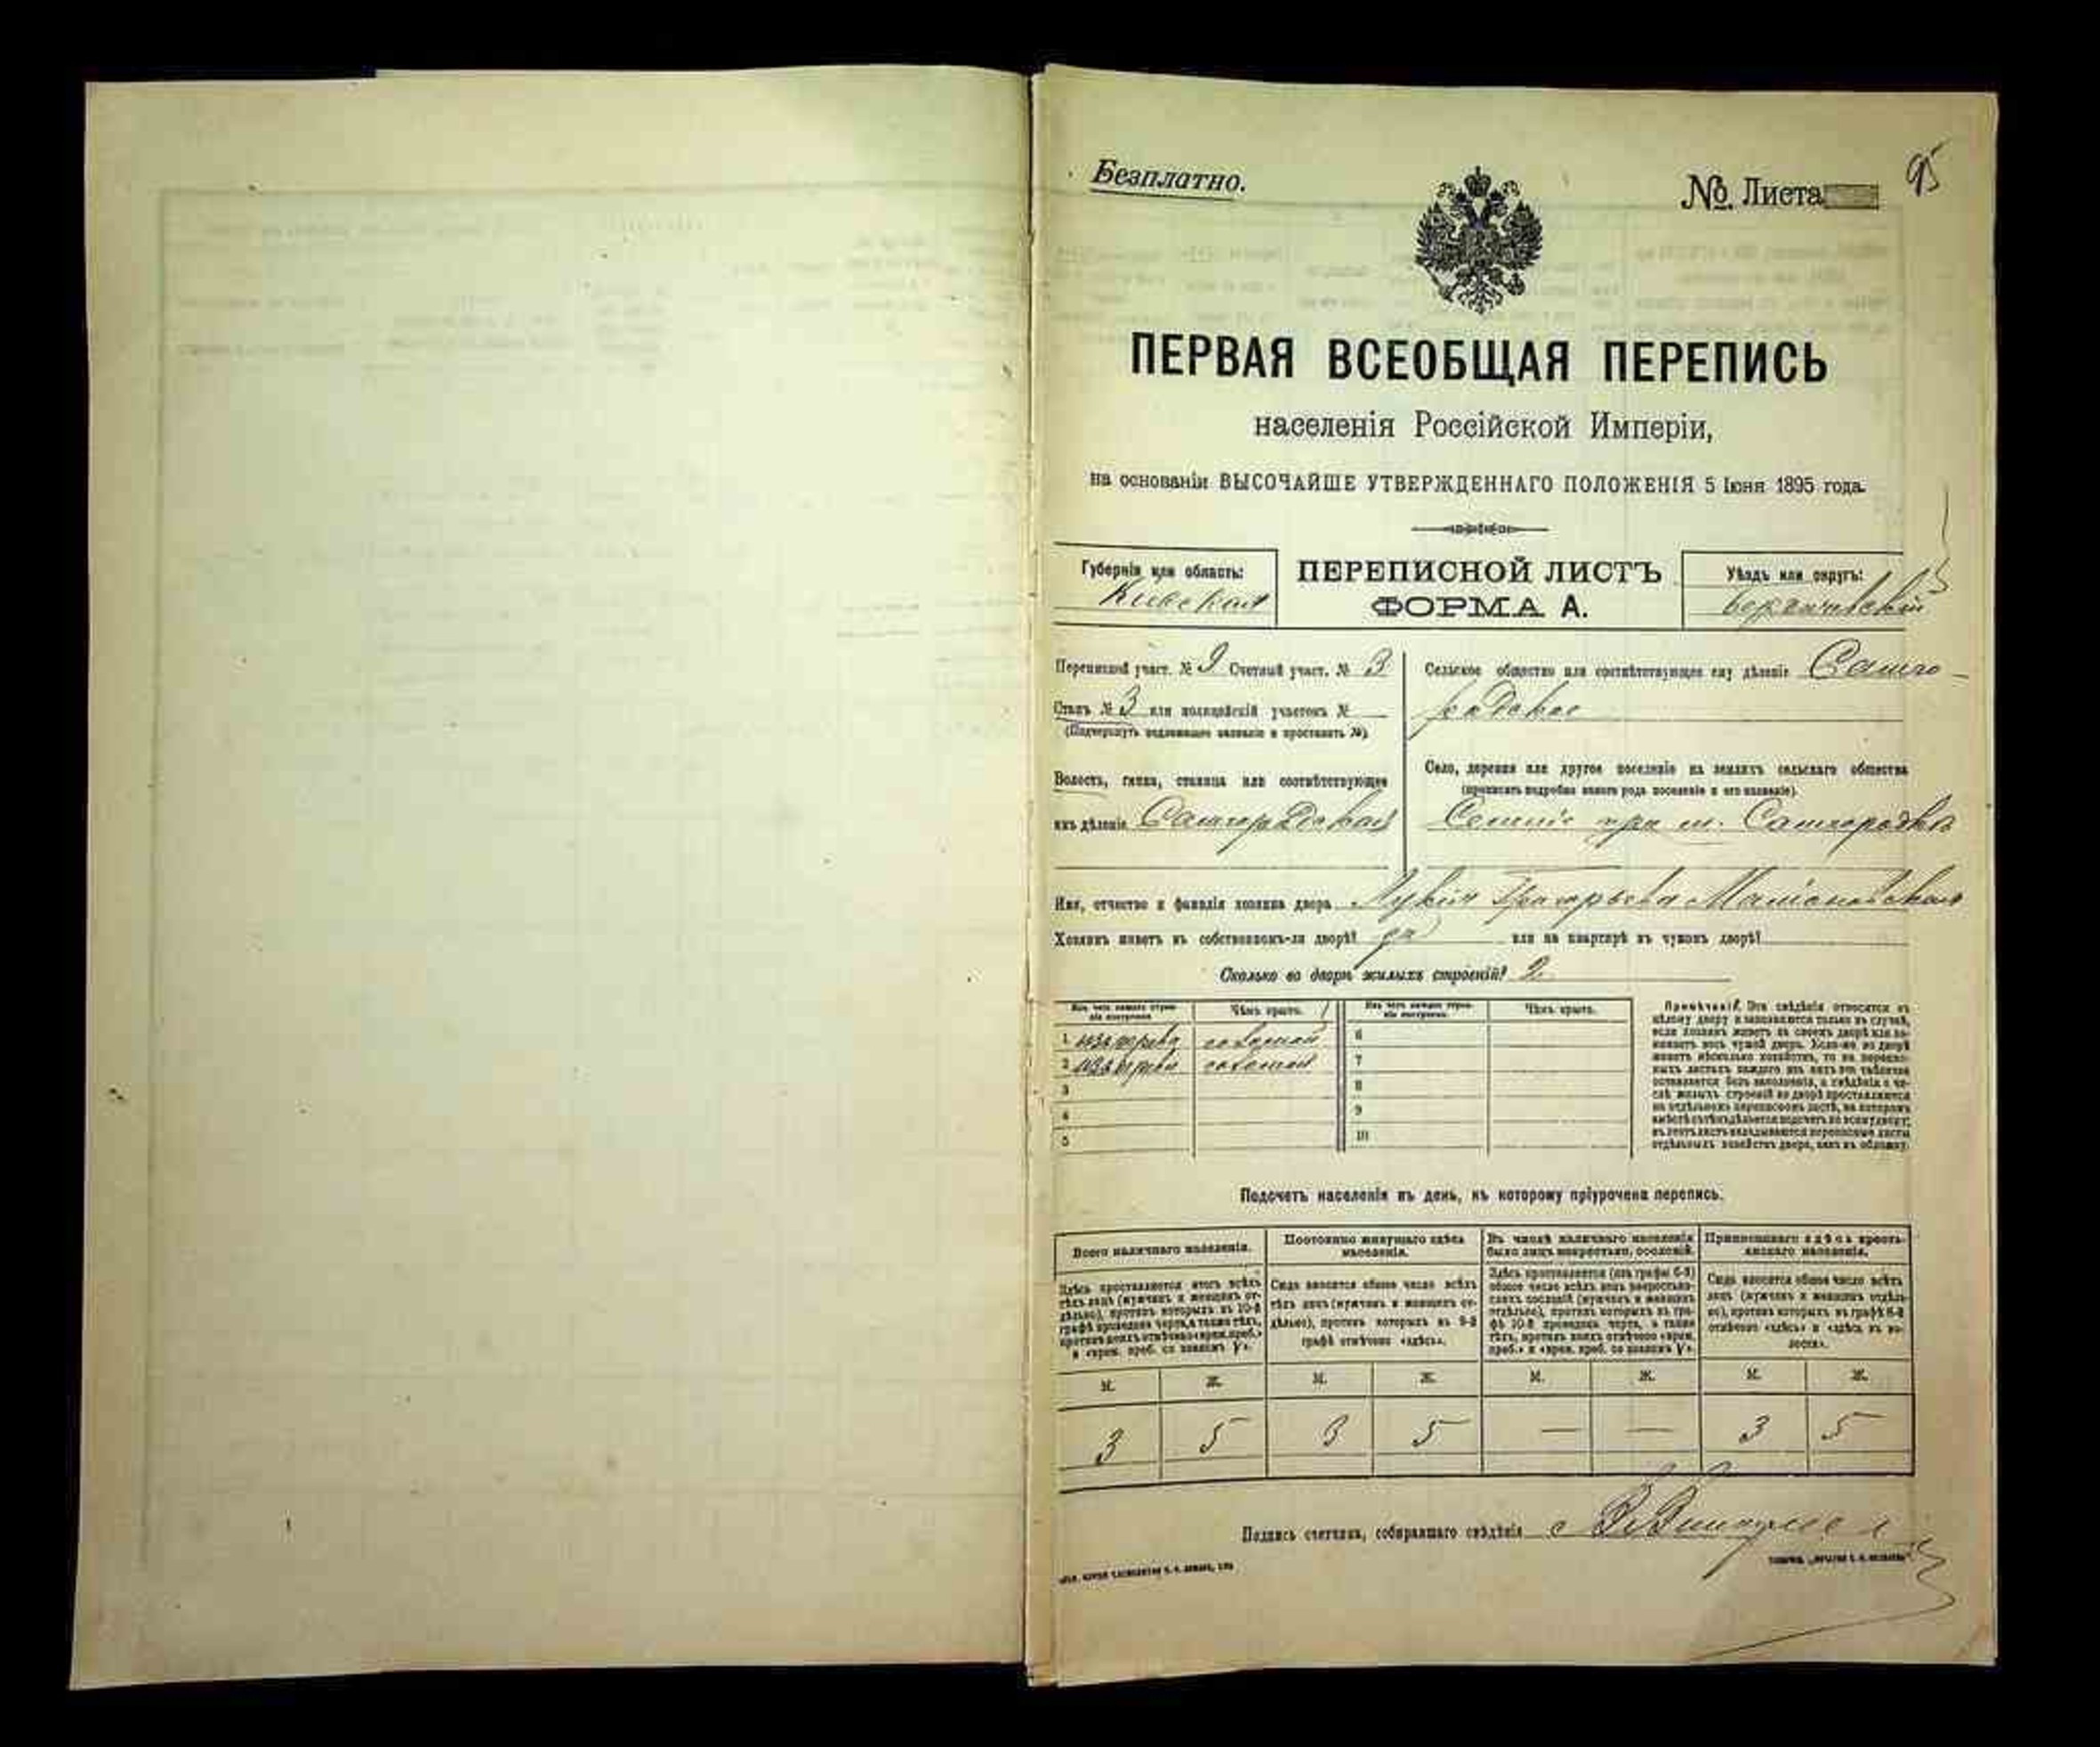 Безплатно.
№ Листа
95
ПЕРВАЯ ВСЕОБЩАЯ ПЕРЕПИСЬ
населенія Россійской Имперіи,
на основаніи ВЫСОЧАЙШЕ УТВЕРЖДЕННАГО ПОЛОЖЕНІЯ 5 Іюня 1895 года.
Губернія или область:
Кіевская
ПЕРЕПИСНОЙ ЛИСТЪ
ФОРМА А.
Уѣздъ или округъ:
Бердичевскій
Переписной участ. № 9 Счетный участ. № 3
Станъ № 3 или полицейскій участокъ №
(Подчеркнуть подлежащее названіе и проставить №).
Волость, гмина, станица или соотвѣтствующее
имъ дѣленіе Самгородская
Сельское общество или соотвѣтствующее ему дѣленіе Самго-
родское
Село, деревня или другое поселеніе на земляхъ сельскаго общества
(прописать подробно какого рода поселеніе и его названіе).
при м. Самгородкѣ
Имя, отчество и фамилія хозяина двора Григорьева
Хозяинъ живетъ въ собственномъ-ли дворѣ? да или на квартирѣ въ чужомъ дворѣ?
Сколько во дворѣ жилыхъ строеній? 2
Изъ чего каждое строе-
ніе построено.
Чѣмъ крыто.
Изъ чего каждое строе-
ніе построено.
Чѣмъ крыто.
1 изъ дерева соломой
2 изъ дерева соломой
3
4
5
6
7
8
9
10
Примѣчаніе. Эти свѣдѣнія относятся къ
цѣлому двору и заполняются только въ случаѣ,
если хозяинъ живетъ въ своемъ дворѣ или за-
нимаетъ весь чужой дворъ. Если-же во дворѣ
живетъ нѣсколько хозяйствъ, то на перепис-
ныхъ листахъ каждаго изъ нихъ эти таблички
оставляются безъ заполненія, а свѣдѣнія о чи-
слѣ жилыхъ строеній во дворѣ проставляются
на отдѣльномъ переписномъ листѣ, на которомъ
вмѣстѣ съ тѣмъ дѣлается подсчетъ по всему двору;
въ этотъ листъ вкладываются переписные листы
отдѣльныхъ хозяйствъ двора, какъ въ обложку.
Подсчетъ населенія въ день, къ которому пріурочена перепись.
Всего наличнаго населенія.
Постоянно живущаго здѣсь
населенія.
Въ числѣ наличнаго населенія
было лицъ некрестьян. сословій.
Приписаннаго здѣсь кресть-
янскаго населенія.
Здѣсь проставляется итогъ всѣхъ
тѣхъ лицъ (мужчинъ и женщинъ от-
дѣльно), противъ которыхъ въ 10-й
графѣ проведена черта, а также тѣхъ,
противъ коихъ отмѣчено «врем. преб.»
и «врем. преб. со знакомъ V».
Сюда вносится общее число всѣхъ
тѣхъ лицъ (мужчинъ и женщинъ от-
дѣльно), противъ которыхъ въ 9-й
графѣ отмѣчено «здѣсь».
Здѣсь проставляется (изъ графы 6-й)
общее число всѣхъ лицъ некрестьян-
скихъ сословій (мужчинъ и женщинъ
отдѣльно), противъ которыхъ въ гра-
фѣ 10-й проведена черта, а также
тѣхъ, противъ коихъ отмѣчено «врем.
преб.» и «врем. преб. со знакомъ V».
Сюда вносится общее число всѣхъ
лицъ (мужчинъ и женщинъ отдѣль-
но), противъ которыхъ въ графѣ 8-й
отмѣчено «здѣсь» и «здѣсь въ во-
лости».
М. Ж. М. Ж. М. Ж. М. Ж.
3 5 3 5 — — 3 5
Подпись счетчика, собиравшаго свѣдѣнія